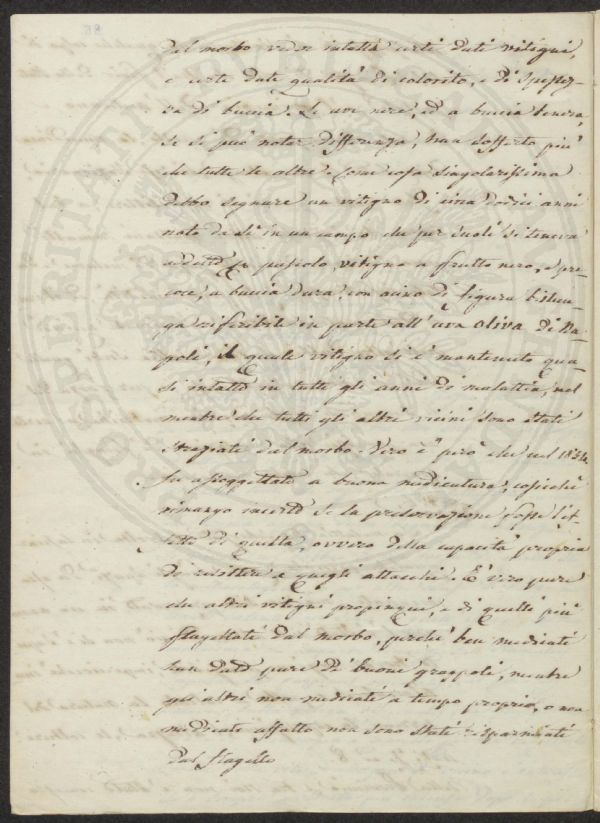 dal morbo veder intatta certi dati vitigni,
e certe date qualità di colorito, e di spessez-
za di buccia. Le uve nere, ed a buccia tenera,
se si può notar differenza, han sofferto più
che tutte le altre. Come cosa singolarissima
debbo segnare un vitigno di una dodici anni
nato da sè in un campo che per suoli si teneva
addetto a pascolo, vitigno a frutto nero, e pre-
coce, a buccia dura, con acino di figura bislun-
ga riferibile in parte all'uva oliva di Na-
poli, il quale vitigno si è mantenuto qua-
si intatto in tutti gli anni di malattia, nel
mentre che tutti gli altri vicini sono stati
straziati dal morbo. Vero è però che nel 1854
fu assoggettato a buona medicatura, cosicchè
rimango incerto se la preservazione fosse l'ef-
fetto di quella, ovvero della capacità propria
di resistere a quegli attacchi. È vero pure
che altri vitigni propinqui, e di quelli più
flagellati dal morbo, perchè ben medicati
han dato pure di buoni grappoli, mentre
gli altri non medicati a tempo proprio, o non
medicati affatto non sono stati risparmiati
dal flagello
PROSPERITATI PUBLICAE